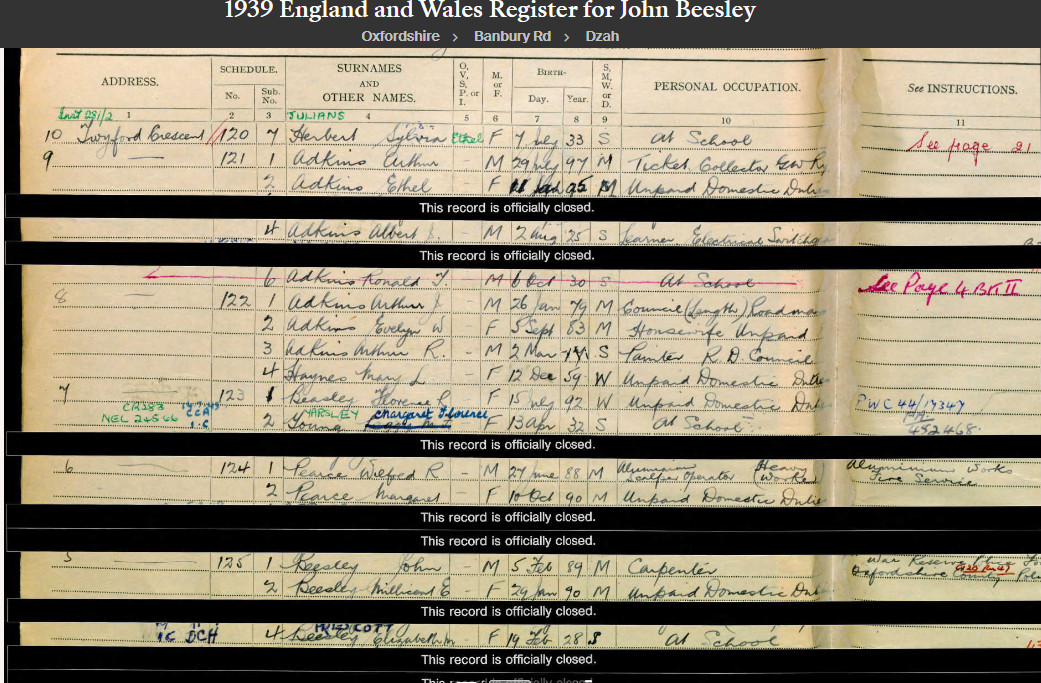 1939 England and Wales Register for John Beesley
Oxfordshire > Banbury Rd > Dzah
ADDRESS. SCHEDULE. No. Sub. No. SURNAMES AND OTHER NAMES. O, V, S, P. or I. M. or F. BIRTH- Day. Year. S, M, W, or D. PERSONAL OCCUPATION. See INSTRUCTIONS.
1 2 3 JULIANS 4 5 6 7 8 9 10 11
10 Twyford Crescent 120 7 Herbert Sylvia Ethel F 7 July 33 S At School See page 21
9 — 121 1 Adkins Arthur - M 29 July 97 M Ticket Collector G W Ry
2 Adkins Ethel - F 11 95 M Unpaid Domestic Duties
This record is officially closed.
4 Adkins Albert J. - M 2 Aug 25 S Learner Electrical
This record is officially closed.
6 Adkins Ronald J. - M 6 Oct 30 S At School See Page 4 BK II
8 — 122 1 Adkins Arthur J - M 26 Jan 79 M Council (Length) Roadman
2 Adkins Evelyn W - F 5 Sept 83 M Housewife Unpaid
3 Adkins Arthur R. - M 2 Mar S Painter R. D. Council
4 Haynes Mary L - F 12 Dec 59 W Unpaid Domestic Duties
7 123 1 Beasley Florence R - F 15 July 92 W Unpaid Domestic Duties PWC 44/17347
CR283 NEL 24566 CCA 2 YARSLEY Young Margaret Florence F 13 Apr 32 S At School 452468.
This record is officially closed.
6 — 124 1 Pearce Wilfred R - M 27 June 88 M Aluminium Operator (Heavy Worker) Aluminium Works Fire Service
2 Pearce Margaret - F 10 Oct 90 M Unpaid Domestic Dutie
This record is officially closed.
This record is officially closed.
5 — 125 1 Beesley John - M 5 Feb 89 M Carpenter War Reserve Oxfordshire County
2 Beesley Millicent E - F 29 Jan 90 M Unpaid Domestic Dut
This record is officially closed.
DCH 4 PRESCOTT Beesley Elizabeth M - F 19 Feb 28 S At School
This record is officially closed.